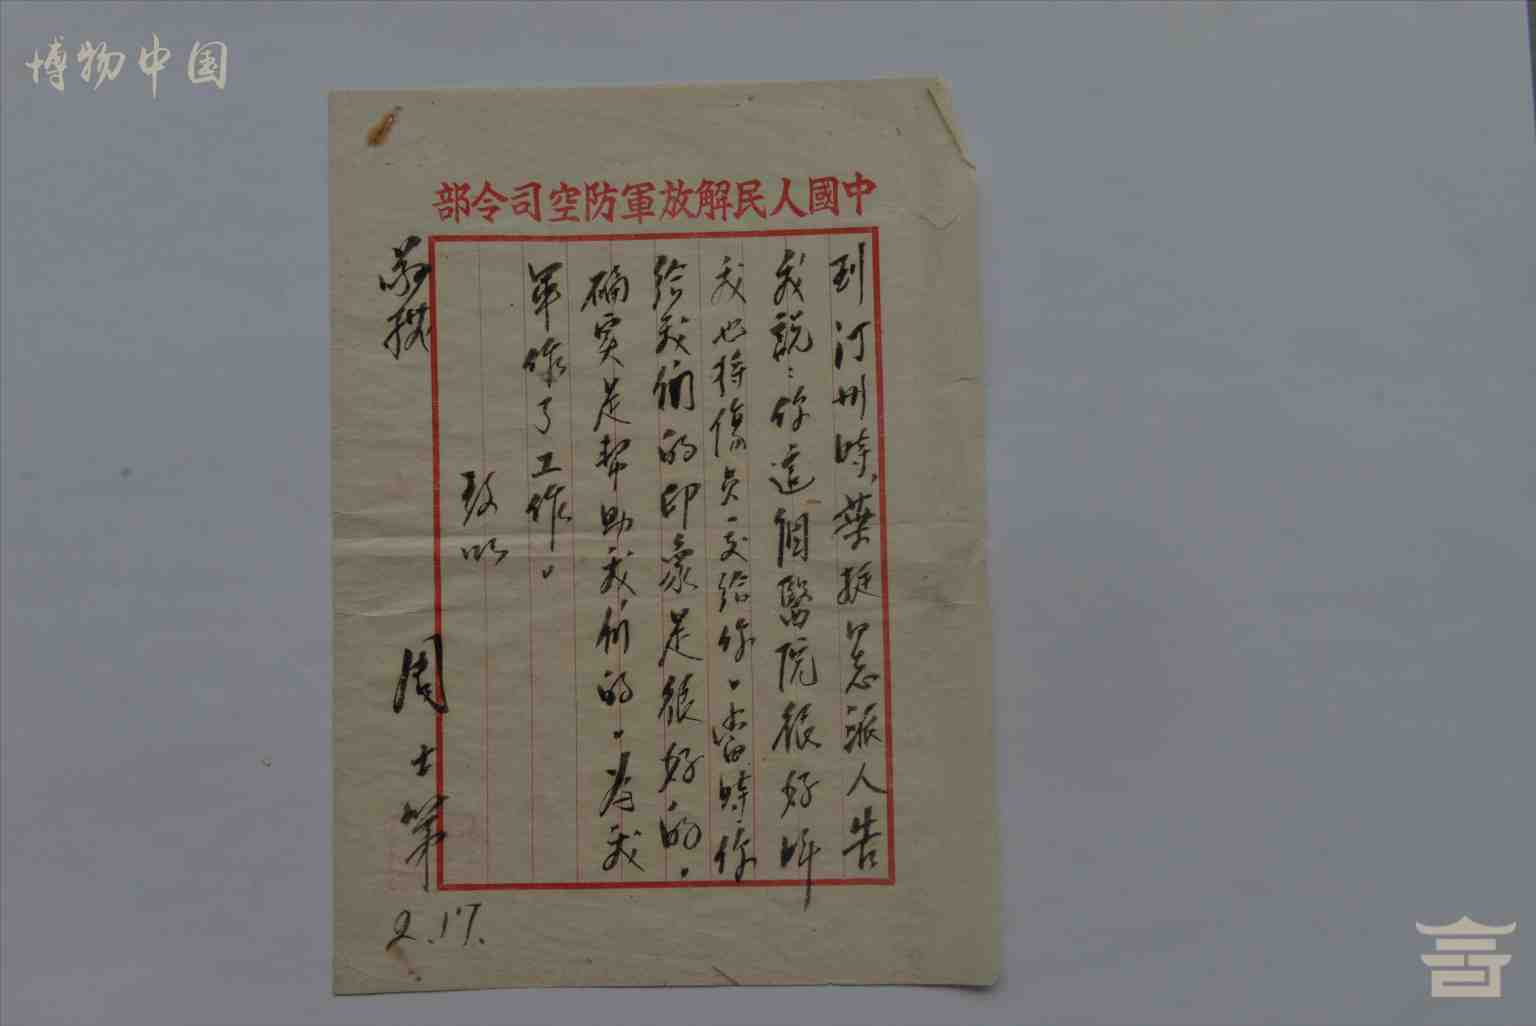 博物中国
中國人民解放軍防空司令部
到汀州時,葉挺派人告
我說:你這個醫院很好叫
我也將傷員交給你。當時你
給我們的印象是很好的。
確實是幫助我們的。为我
軍作了工作。
致以
敬禮
周士第
2.17.